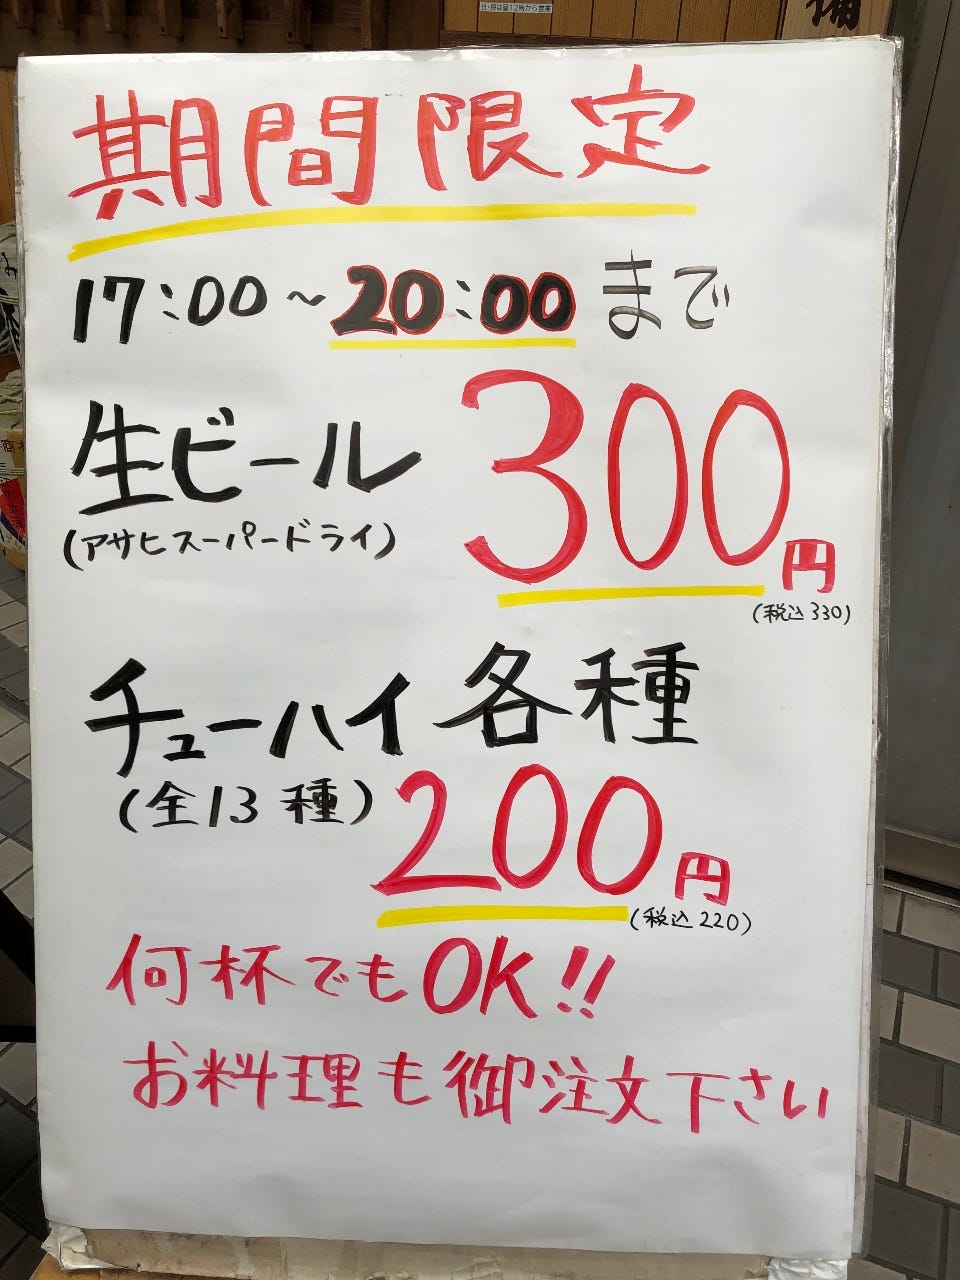 日・祝は昼12時から営業
期間限定
17:00〜20:00まで
生ビール 300円
(アサヒスーパードライ)
(税込330)
チューハイ各種
(全13種) 200円
(税込220)
何杯でもOK!!
お料理も御注文下さい